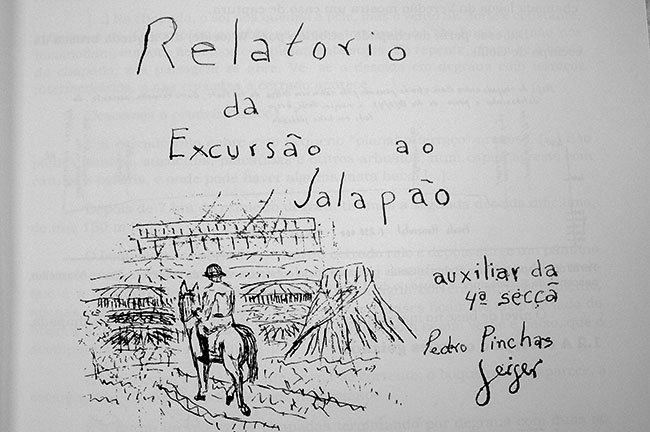 Relatorio
da
Excursão ao
Jalapão
auxiliar da
4ª secçã
Pedro Pinchas
Geiger